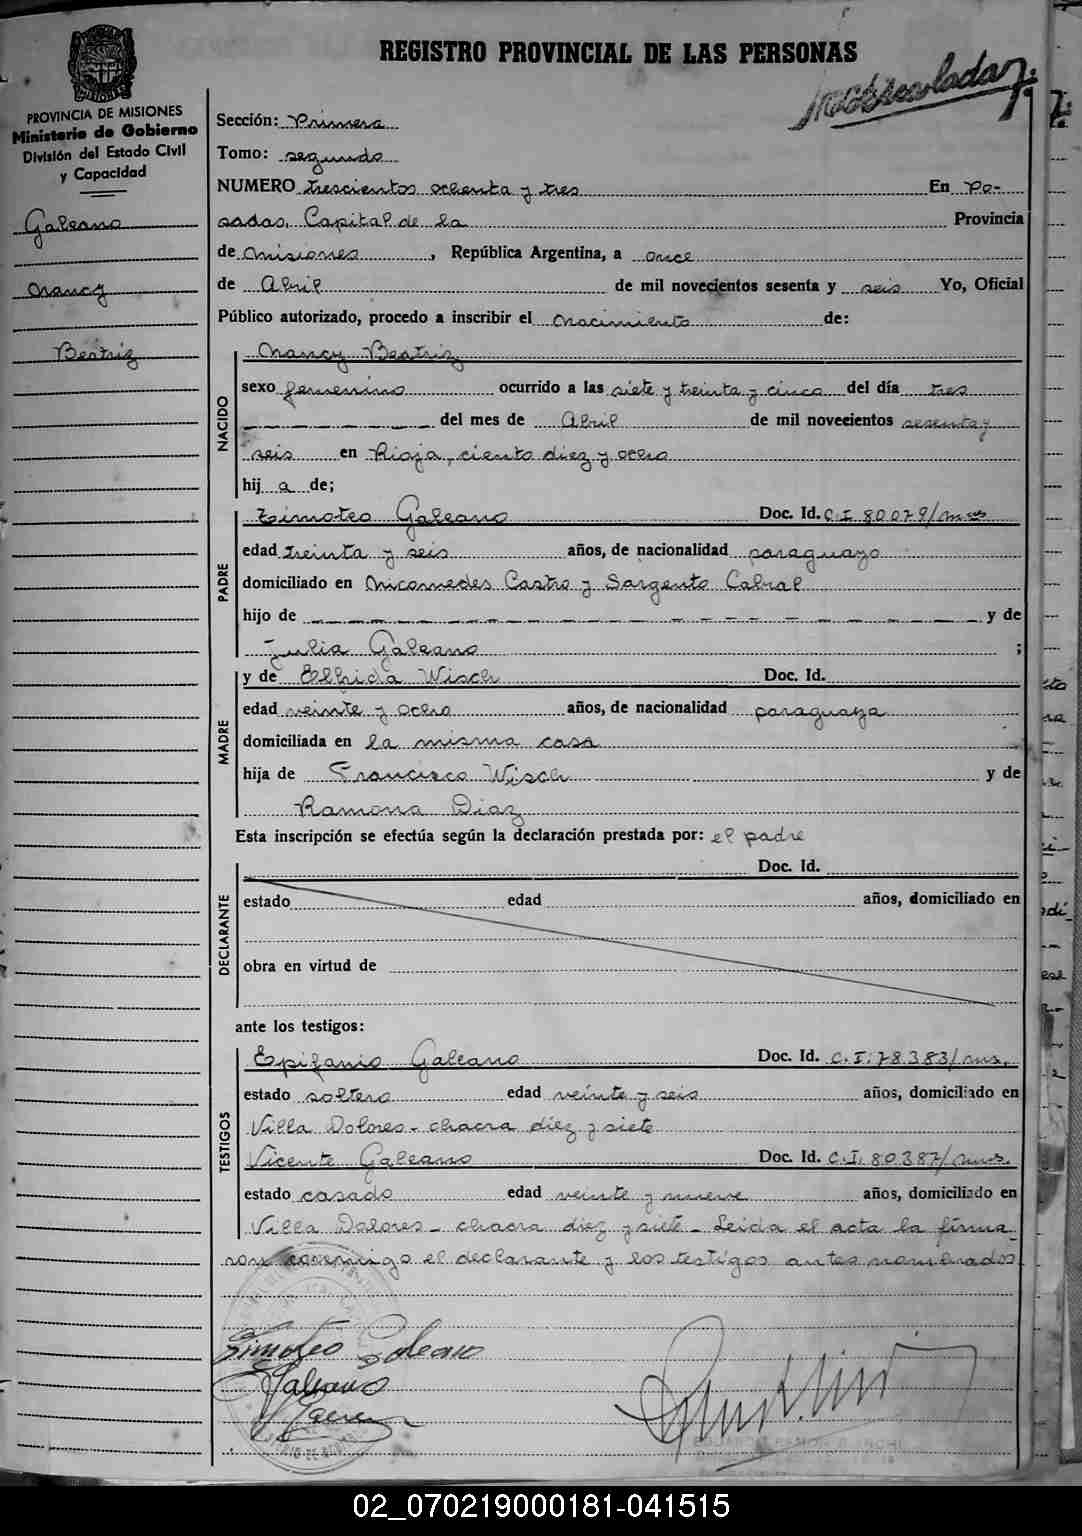 REGISTRO PROVINCIAL DE LAS PERSONAS
PROVINCIA DE MISIONES
Ministerio de Gobierno
División del Estado Civil
y Capacidad
Galeano
Nancy
Beatriz
Sección: Primera
Tomo: segundo
NUMERO trescientos ochenta y tres En Po-
sadas, Capital de la Provincia
de Misiones, República Argentina, a once
de Abril de mil novecientos sesenta y seis Yo, Oficial
Público autorizado, procedo a inscribir el nacimiento de:
NACIDO
Nancy Beatriz
sexo femenino ocurrido a las siete y treinta y cinco del día tres
del mes de Abril de mil novecientos sesenta y
seis en Rioja, ciento diez y ocho
hij a de;
PADRE
Timoteo Galeano Doc. Id. C.I 80079/mns
edad treinta y seis años, de nacionalidad paraguayo
domiciliado en Nicomedes Castro y Sargento Cabral
hijo de y de
Julia Galeano ;
MADRE
y de Elfrida Wisch Doc. Id.
edad veinte y ocho años, de nacionalidad paraguaya
domiciliada en la misma casa
hija de Francisco Wisch y de
Ramona Diaz
Esta inscripción se efectúa según la declaración prestada por: el padre
DECLARANTE
Doc. Id.
estado edad años, domiciliado en
obra en virtud de
ante los testigos:
TESTIGOS
Epifanio Galeano Doc. Id. C.I. 78.383/mns.
estado soltero edad veinte y seis años, domiciliado en
Villa Dolores - chacra diez y siete
Vicente Galeano Doc. Id. C.I. 80.387/mns.
estado casado edad veinte y nueve años, domiciliado en
Villa Dolores - chacra diez y siete - Leida el acta la firma-
ron conmigo el declarante y los testigos antes nombrados
Timoteo Galeano
Galeano
02_070219000181-041515